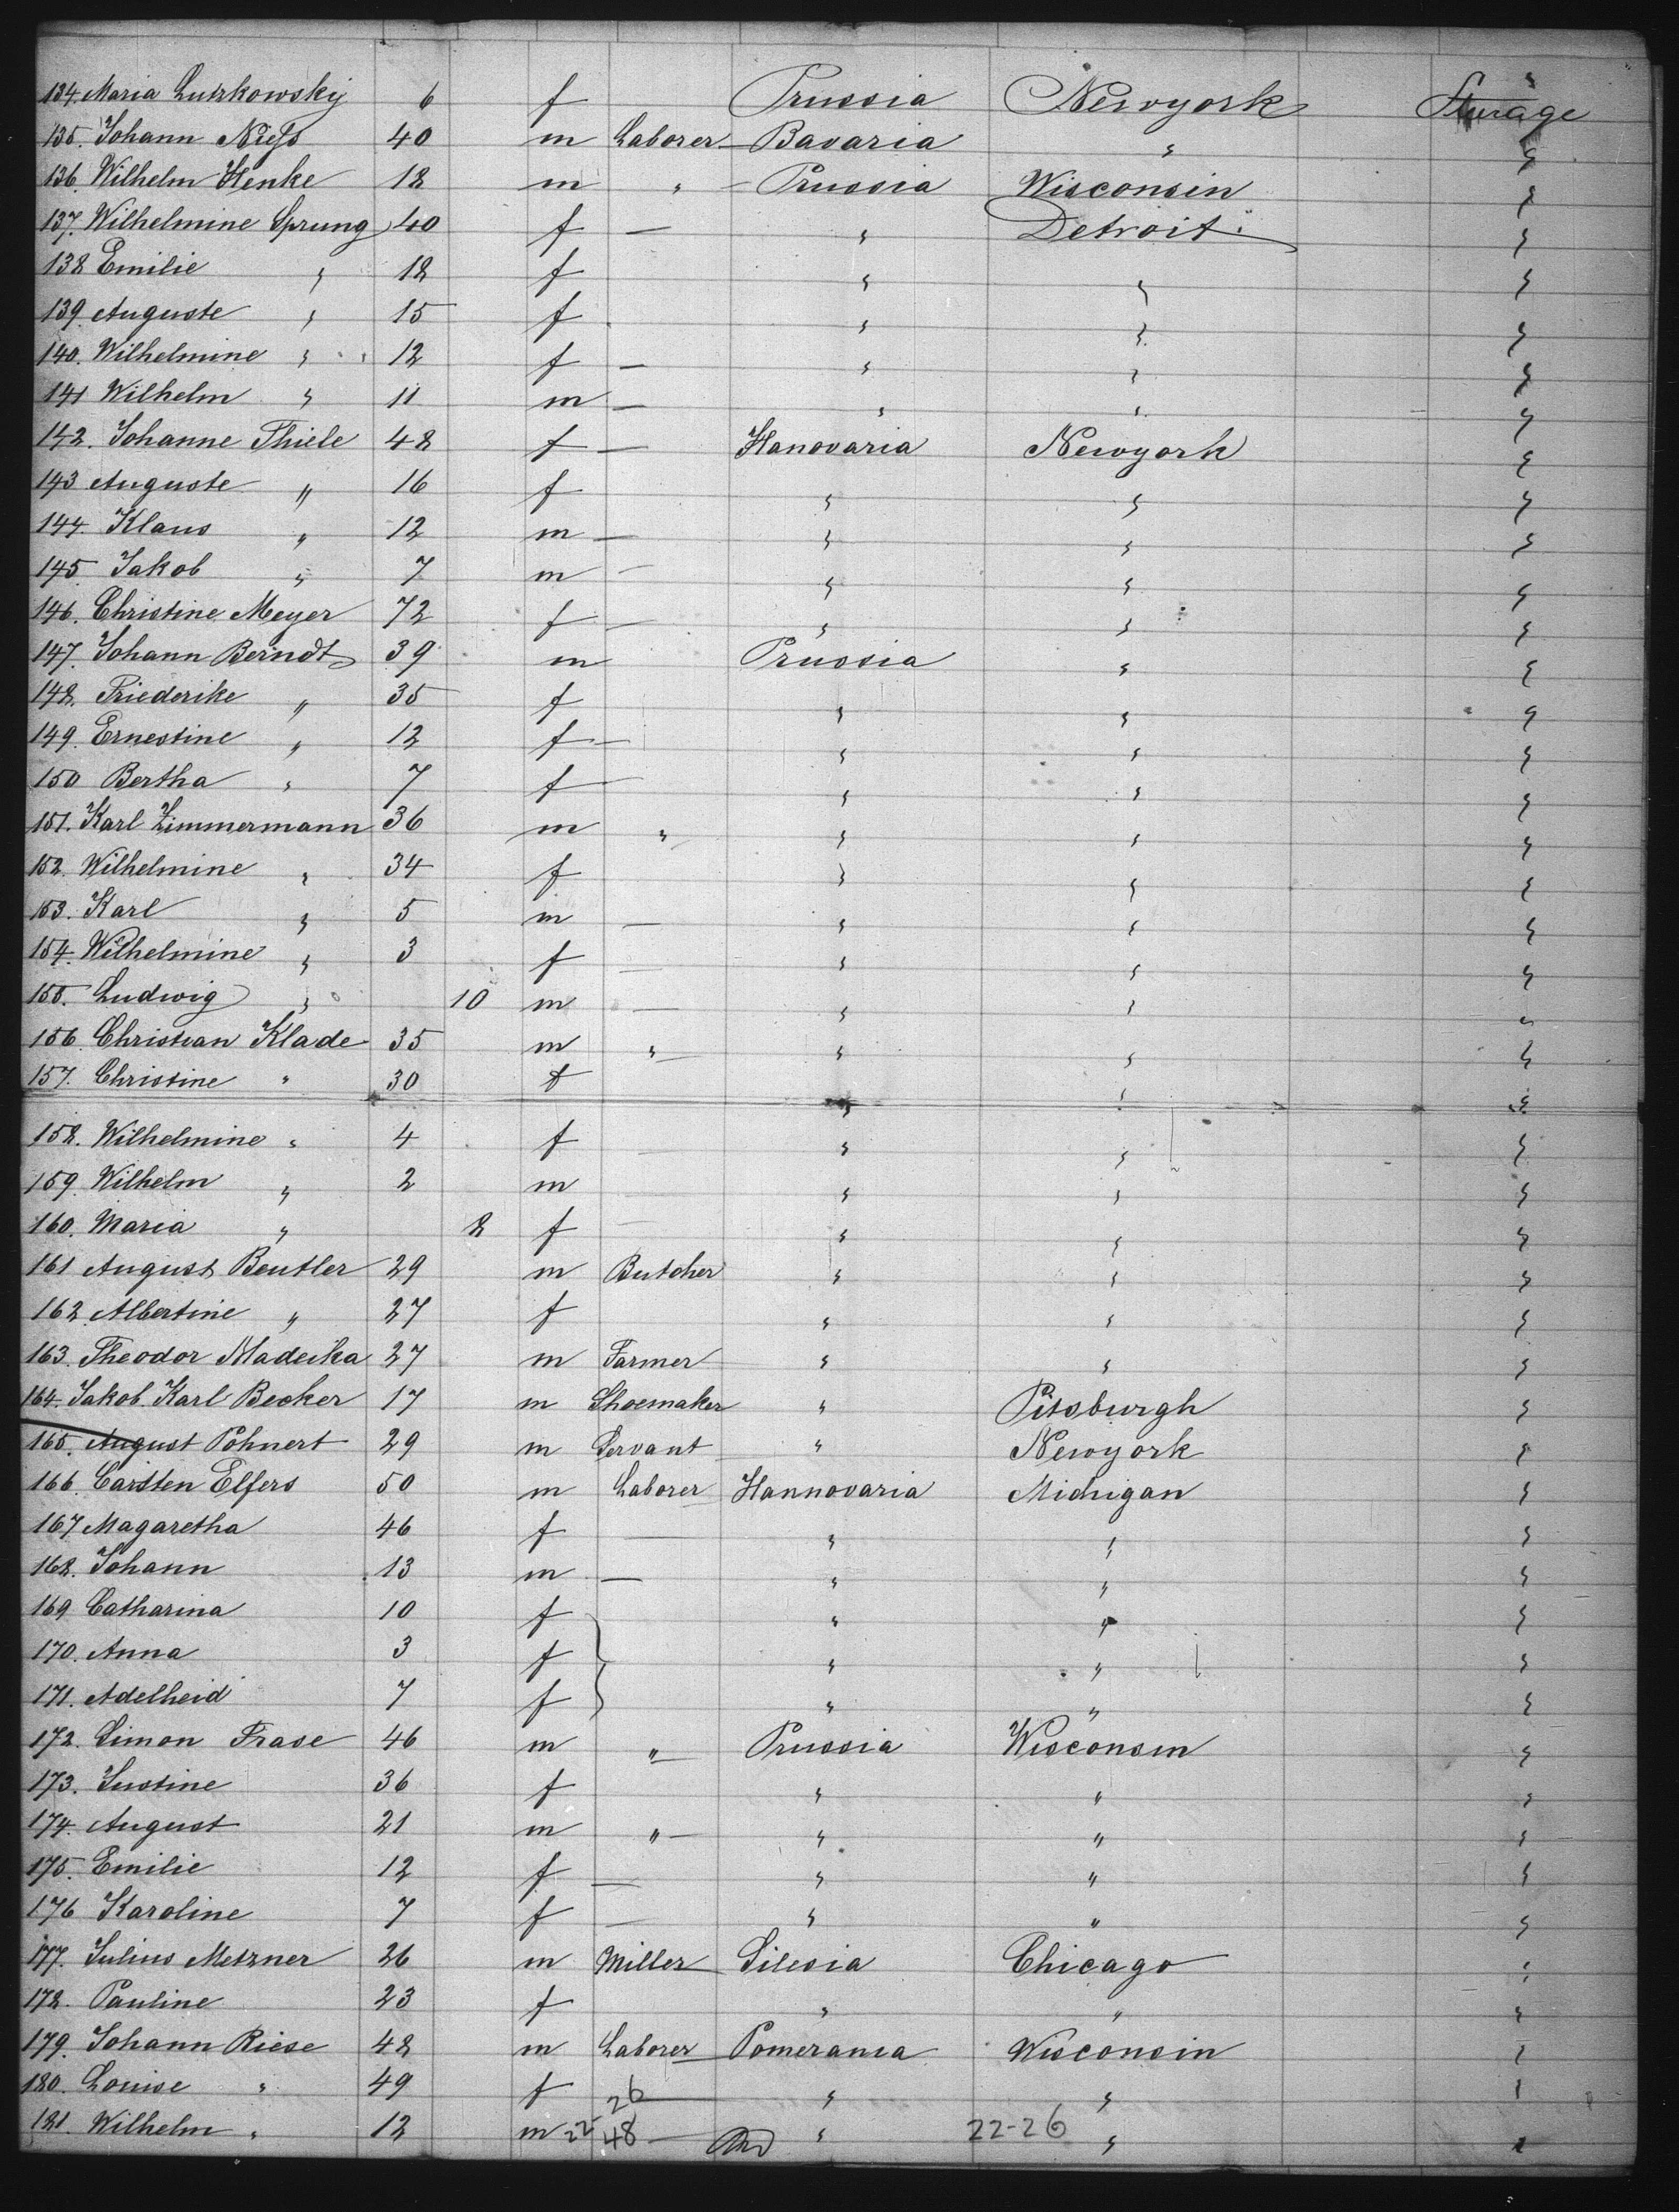 134. Maria Lutzkowsky 6 f Prussia Newyork Steerage
135. Johann 40 m Laborer Bavaria "
136. Wilhelm Henke 18 m " Prussia Wisconsin "
137. Wilhelmine Sprung 40 f — " Detroit "
138 Emilie " 18 f " " "
139. Auguste " 15 f " " "
140. Wilhelmine " 12 f — " " "
141 Wilhelm " 11 m — " " "
142. Johanne Thiele 48 f — Hanovaria Newyork "
143 Auguste " 16 f " " "
144. Klaus " 12 m — " " "
145. Jakob " 7 m — " " "
146. Christine Meyer 72 f — " " "
147. Johann Berndt 39 m Prussia " "
148. Friederike " 35 f " " "
149. Ernestine " 12 f — " " "
150 Bertha " 7 f — " " "
151. Karl Zimmermann 36 m " " " "
152. Wilhelmine " 34 f " " "
153. Karl " 5 m — " " "
154. Wilhelmine " 3 f — " " "
155. Ludwig " 10 m — " " "
156. Christian Klade 35 m " " " "
157. Christine " 30 f " " "
158. Wilhelmine " 4 f — " " "
159. Wilhelm " 2 m " " "
160. Maria " 8 f — " " "
161 August Beutler 29 m Butcher " " "
162. Albertine " 27 f " " "
163. Theodor Madeika 27 m Farmer " " "
164. Jakob Karl Becker 17 m Shoemaker " Pitsburgh "
165. August Pohnert 29 m Servant " Newyork "
166. Carsten Elfers 50 m Laborer Hannovaria Michigan "
167 Magaretha 46 f — " " "
168. Johann 13 m — " " "
169 Catharina 10 f " " "
170. Anna 3 f " " "
171. Adelheid 7 f " " "
172. Simon Frase 46 m " Prussia Wisconsin "
173. Justine 36 f " " "
174. August 21 m " " " "
175. Emilie 12 f — " " "
176 Karoline 7 f — " " "
177. Julius Metzner 26 m Miller Silesia Chicago "
178. Pauline 23 f " " "
179. Johann Riese 48 m Laborer Pomerania Wisconsin "
180. Louise " 49 f 26 — " " "
181. Wilhelm " 12 m 22 48 — " 22-26 " "